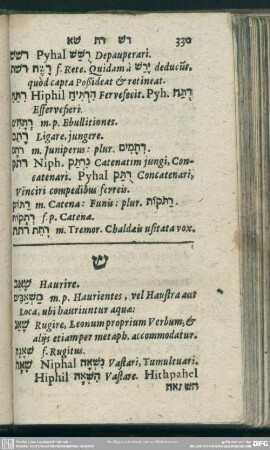 רש רת שא 330
רשש Pyhal רֻשַּׁשׁ Depauperari.
רשת רֶשֶׁת f. Rete. Quidam à יָרַשׁ deducũt,
quòd capta Possideat & retineat.
רתח Hiphil הִרְתִּיחַ Fervefecit. Pyh. רֻתַּח
Effervefieri.
רְתָחִים m. p. Ebullitiones.
רתם Ligare, jungere.
רֹתֶם m. Juniperus: plur. רְתָמִים.
רתק Niph. נִרְתַּק Catenatim jungi, Con-
catenari. Pyhal רֻתַּק Concatenari,
Vinciri compedibus ferreis.
רַתּוֹק m. Catena: Funis: plur. רַתֻּקוֹת.
רְתֻקוֹת f. p. Catenæ.
רתת רֶתֶת m. Tremor. Chaldæis usitata vox.
ש
שאב Haurire.
מַשְׁאַבִּים m. p. Haurientes, vel Haustra aut
Loca, ubi hauriuntur aquæ:
שאג Rugire, Leonum proprium Verbum, &
alijs etiamper metaph. accommodatur.
שְׁאָגָה f. Rugitus.
שאה Niphal נִשְׁאָה Vastari, Tumultuari.
Hiphil הִשְׁאָה Vastare. Hithpahel